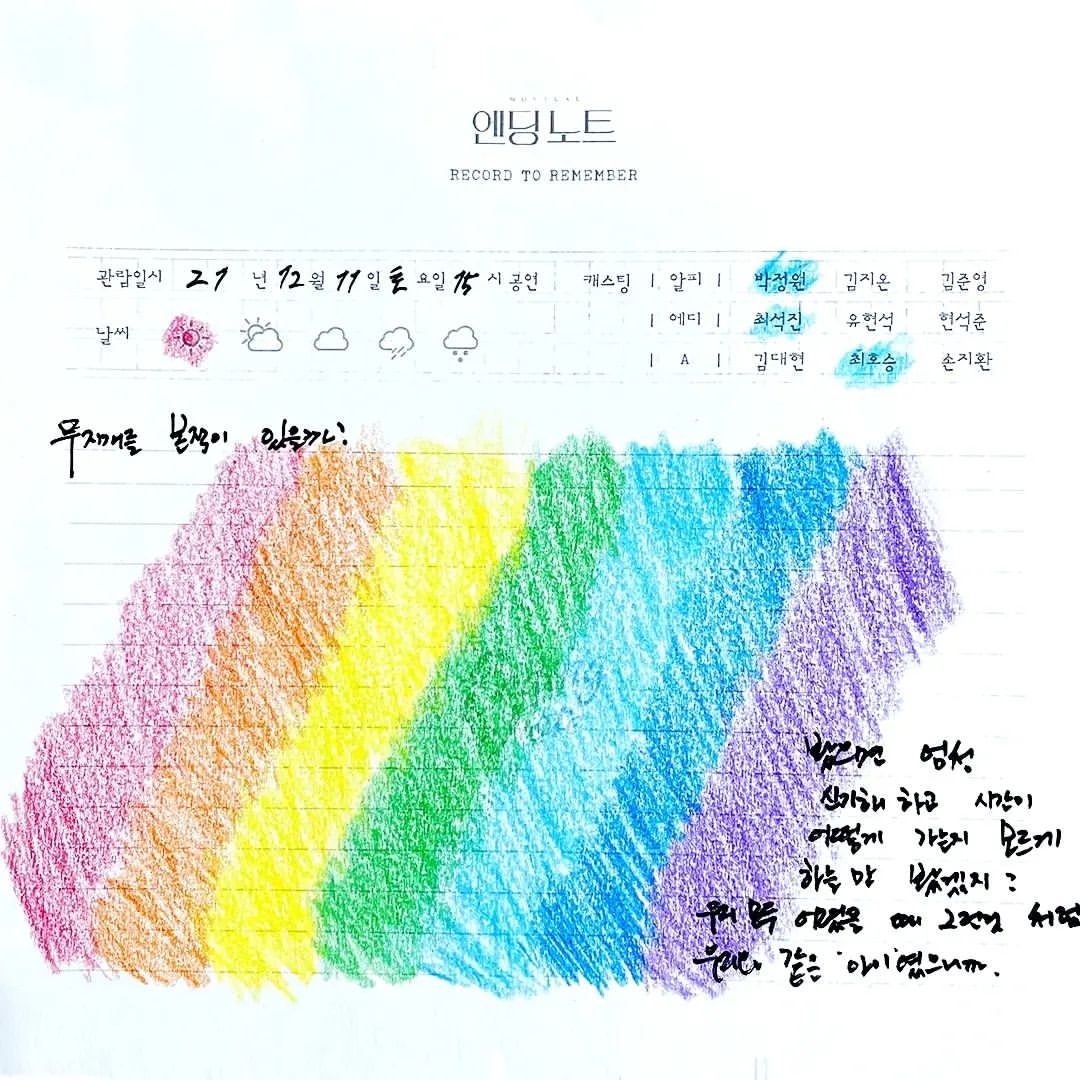 MUSICAL
앤딩노트
RECORD TO REMEMBER
관람일시 21 년 12 월 11 일 토 요일 15 시 공연 캐스팅 | 알피 | 박정원 김지온 김준영
| 에디 | 최석진 유현석 현석준
날씨
| A | 김대현 최호승 손지환
무지개를 본적이 있을까?
봤으면 엄청
신기해 하고 시간이
어떻게 가는지 모르게
하늘 만 봤겠지?
우리 모두 어렸을 때 그런것 처럼
우리는 같은 '아이'였으니까.